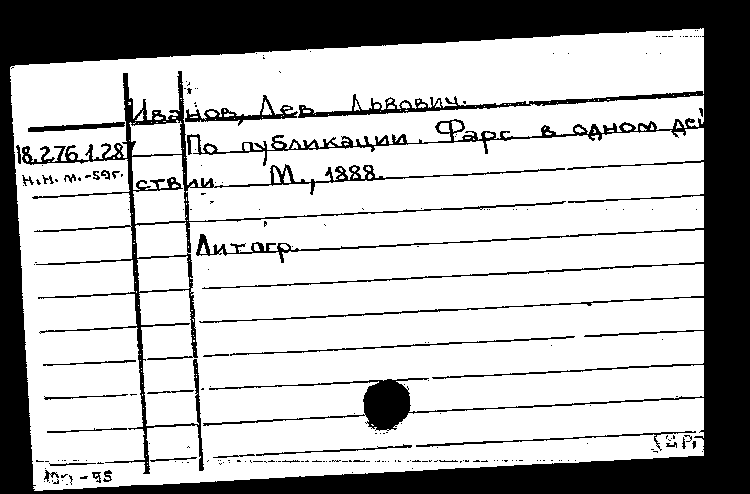 Иванов, Лев Львович.
18.276.1.287 По публикации. Фарс в одном дей
н.н. м.-59г. ствии. М., 1888.
Литогр.